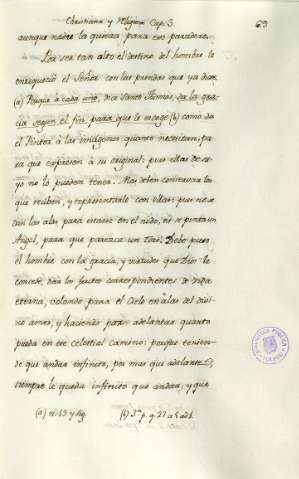 Christiana y Religiosa Cap. 3.
63
aunque nadie la quiera para su paradero.
Por ser tan alto el destino del hombre lo
enriqueció el Señor con las prendas que ya dixe
(a) Porque a cada uno, dice Santo Thomás, da la gra-
cia segun el fin, para que le escoge (b) como da
el Pintor a las imágenes quanto necesitan, pa-
ra que expresen a su original: pues ellas de su-
yo no lo pueden tener. Mas deben conservar lo
que reciben, y representarle con ellas: pues
con las alas para estarse en el nido, ni se pinta un
Angel, para que parezca un Toro. Debe pues
el hombre con la gracia, y virtudes que Dios le
concede, dar los frutos correspondientes de vida
eterna, volando para el Cielo en alas del divi-
no amor, y haciendo por adelantar quanto
pueda en este celestial camino: porque tenien-
do que andar infinito, por mas que adelante,
siempre le queda infinito que andar, y que
(a) n. 15 y sig. (b) 3ª p. q. 27 a 5 ad 1.
BIBLIOTECA PUBLICA